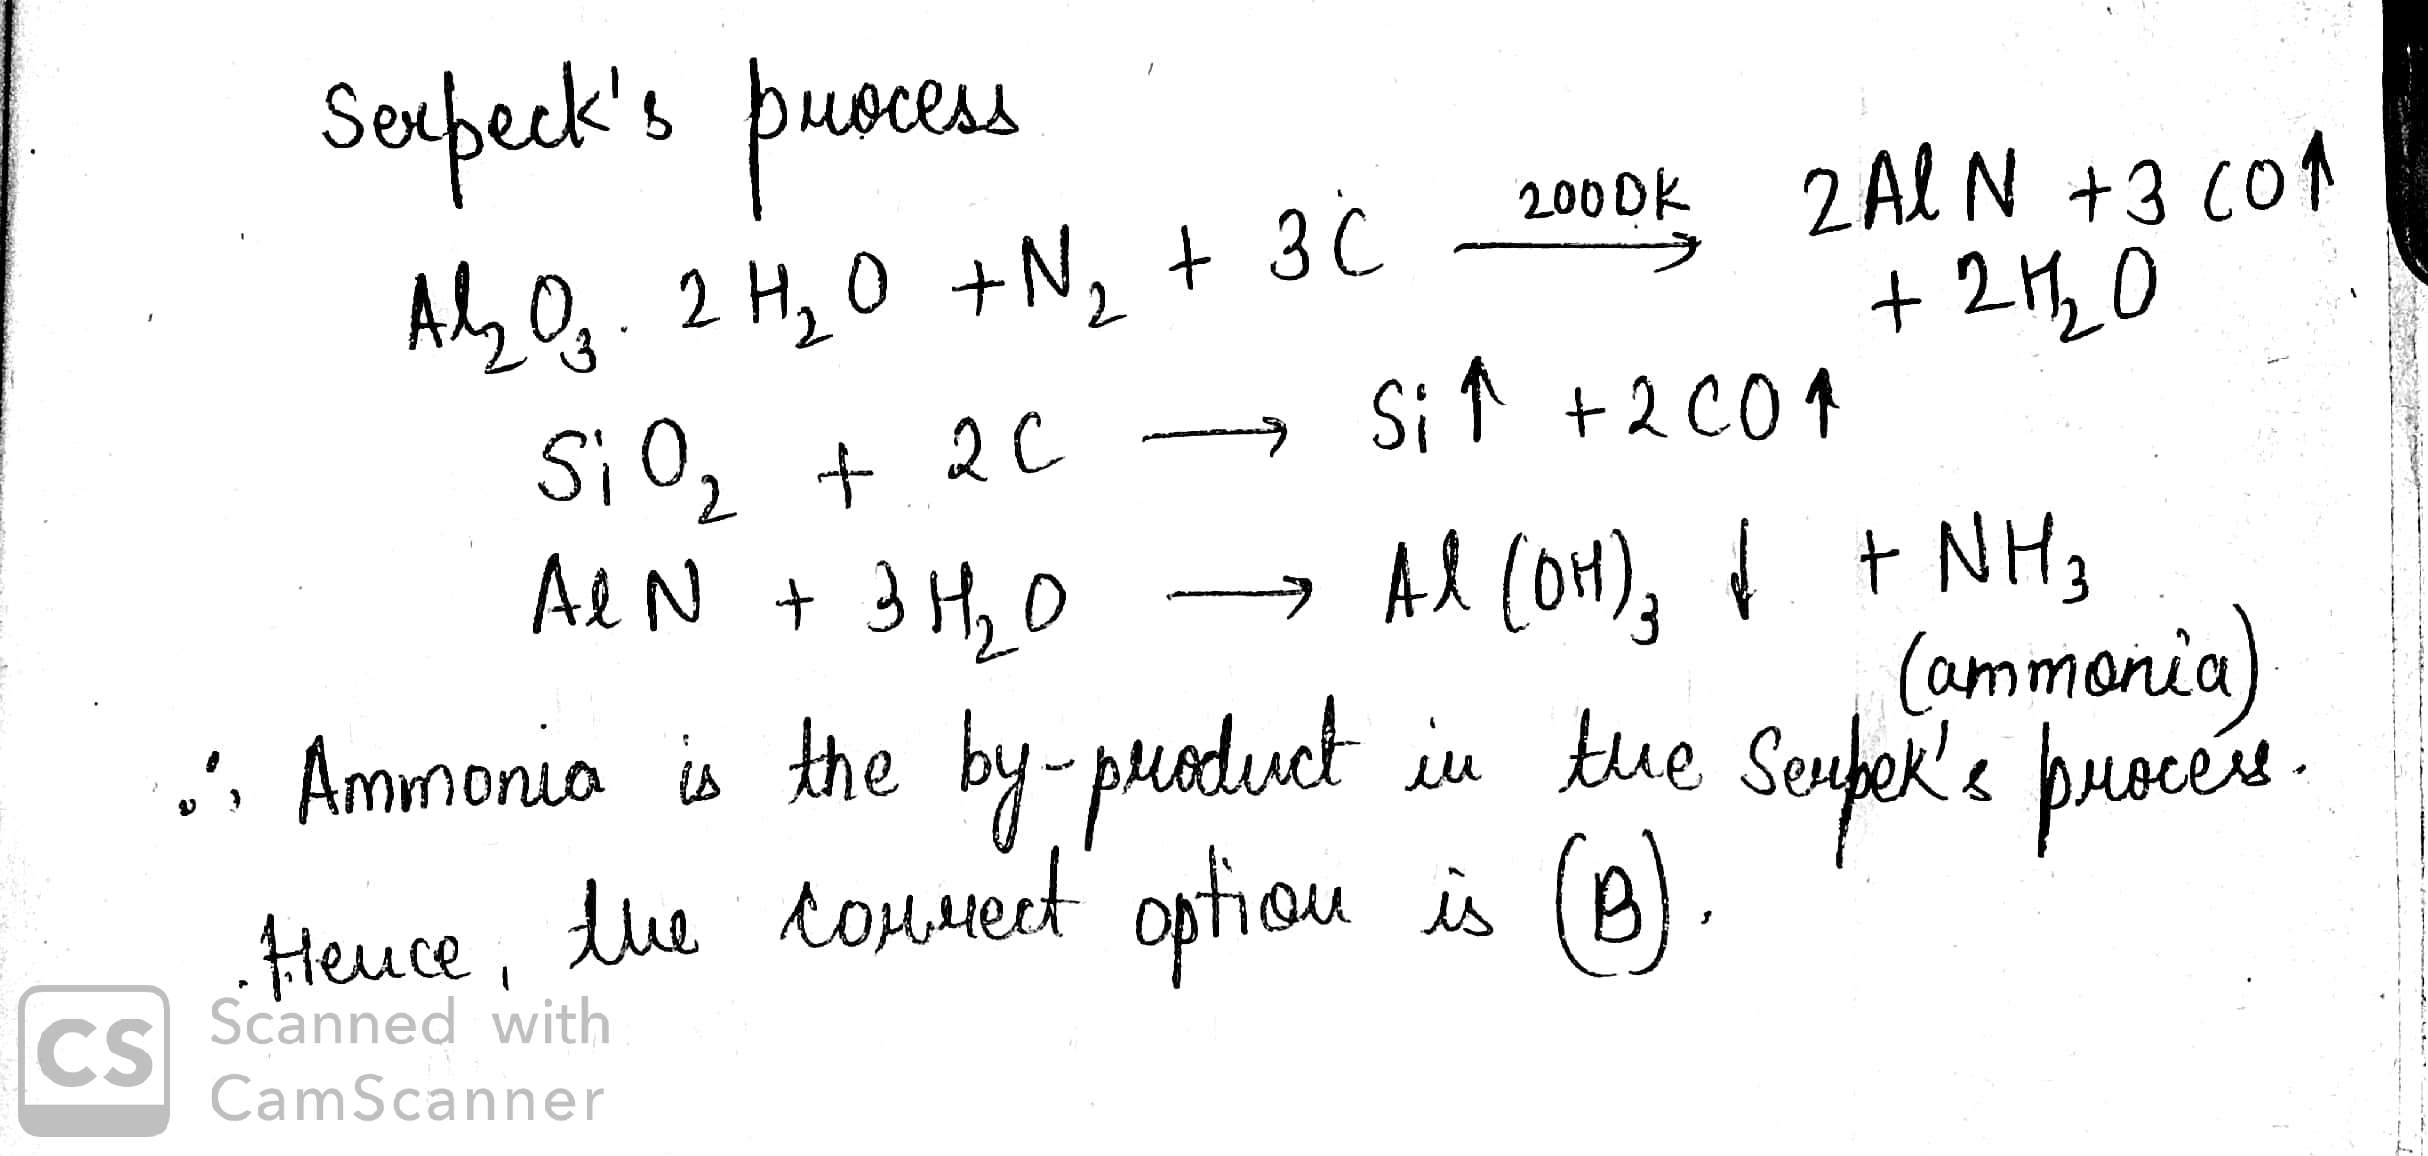 Serpeck's process
Al₂O₃. 2H₂O + N₂ + 3C —2000K→ 2AlN + 3CO↑
+ 2H₂O
SiO₂ + 2C → Si↑ + 2CO↑
AlN + 3H₂O → Al(OH)₃ ↓ + NH₃
(ammonia)
∴ Ammonia is the by-product in the Serpek's process.
Hence, the correct option is (B).
CS Scanned with
CamScanner